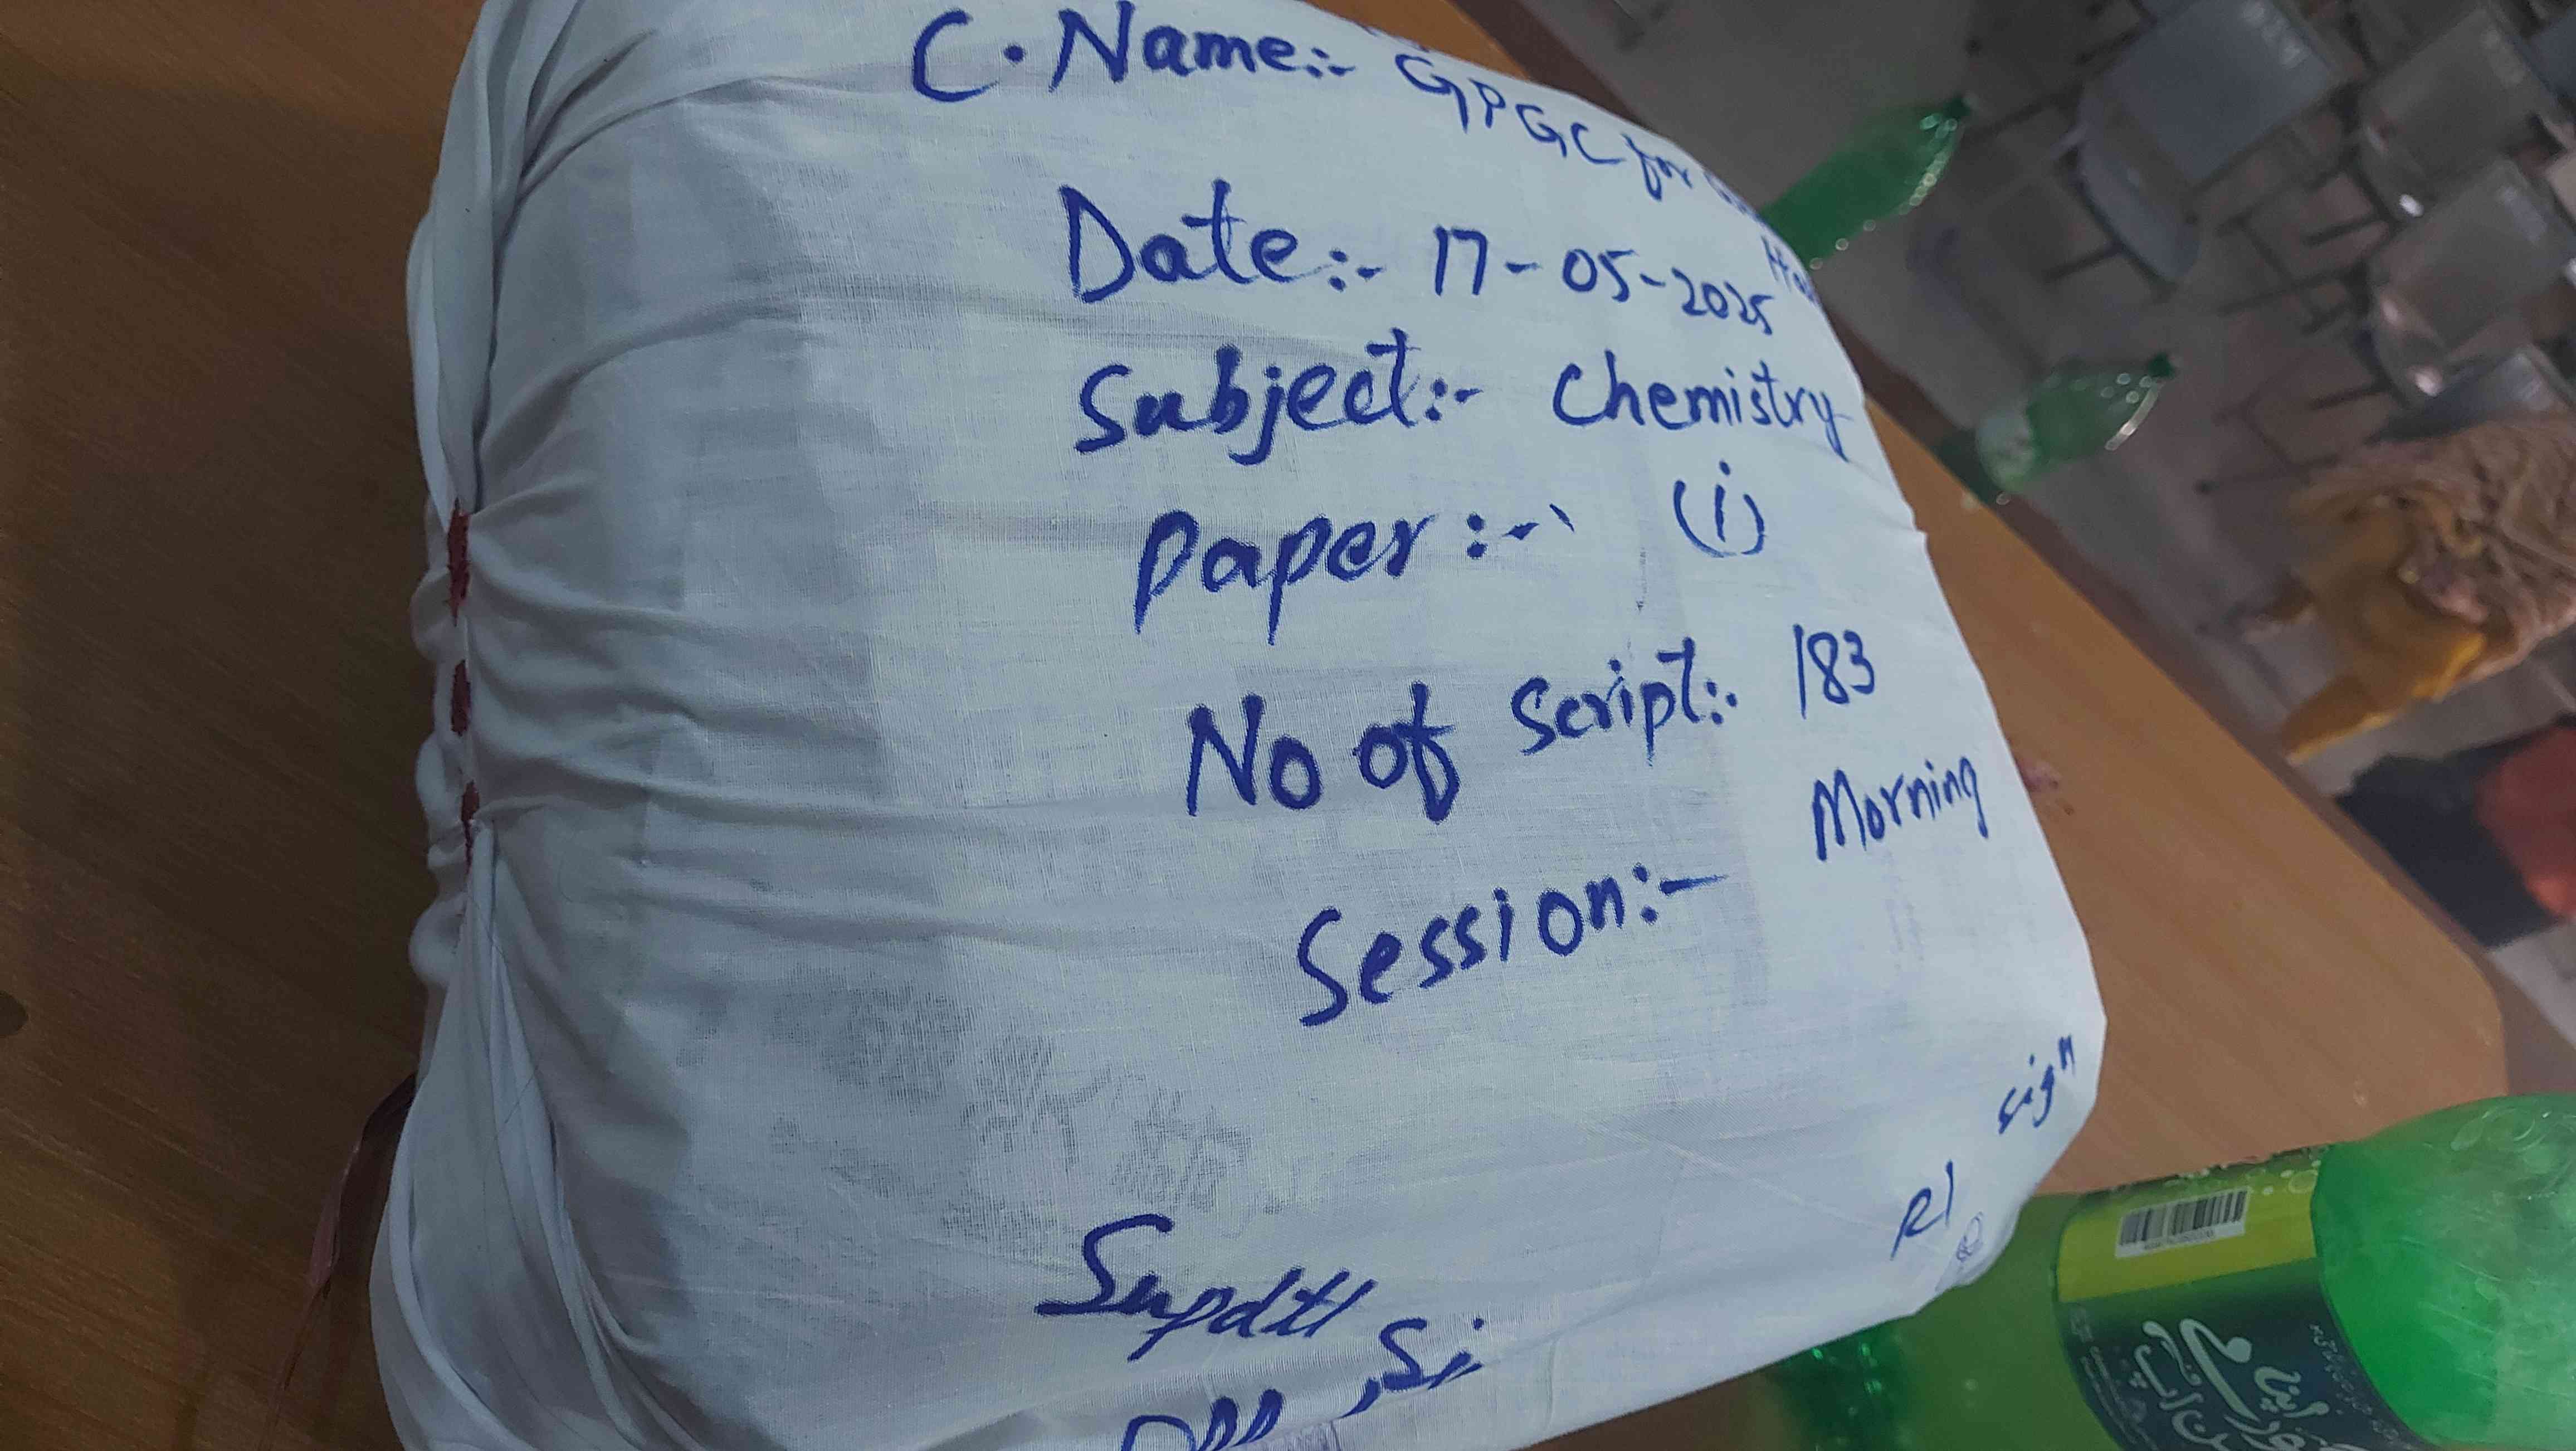 C. Name:- GPGC for
Date:- 17-05-2025
Subject:- Chemistry
Paper:- (i)
No of Script:- 183
Session:- Morning
Supdtt Si
RI sign